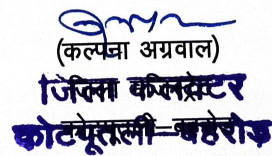 (कल्पना अग्रवाल)
जिला कलक्टर
कोटपूतली-बहरोड़